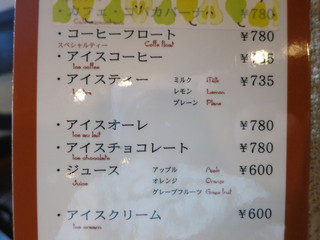 ・コーヒーフロート ¥780
スペシャルティー Coffe float
・アイスコーヒー
Ice coffee
・アイスティー ミルク Milk ¥735
レモン Lemon
プレーン Plane
・アイスオーレ ¥780
Ice au lait
・アイスチョコラート ¥780
Ice chocolate
・ジュース アップル Apple ¥600
Juice オレンジ Orange
グレープフルーツ Grape fruit
・アイスクリーム ¥600
Ice cream